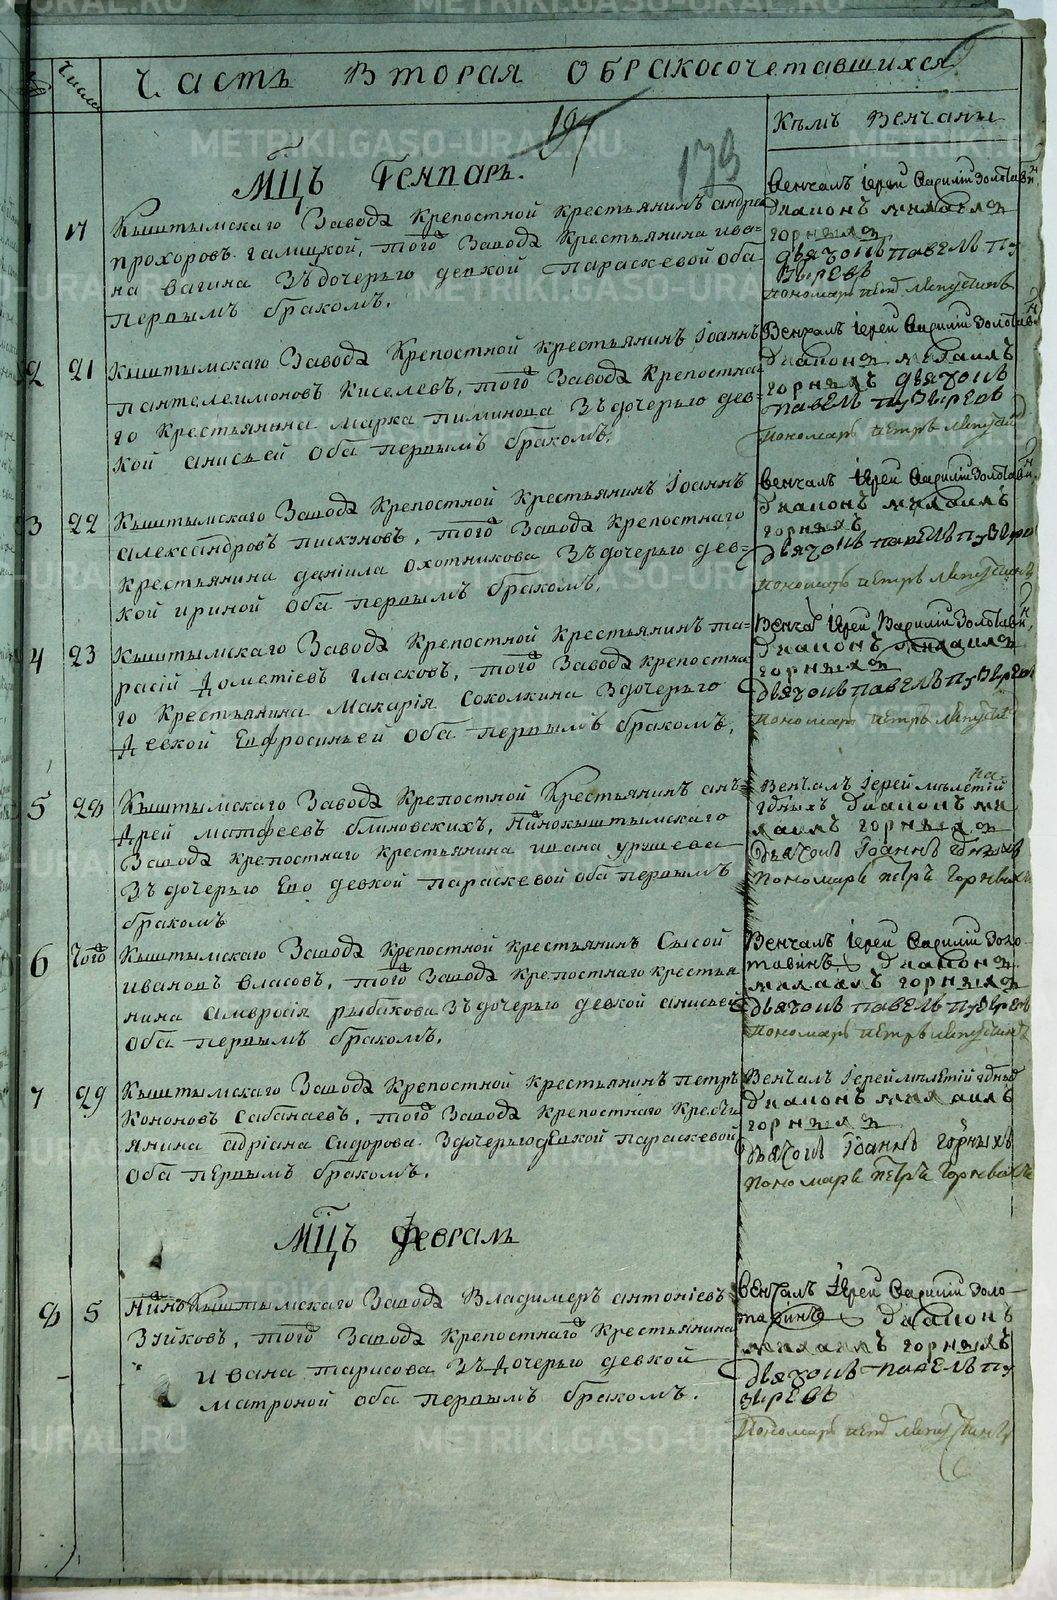 Числа
Часть Вторая о бракосочетавшихся
Кѣмъ Венчаны
197
173
Мц҃ъ Генварь.
1
17
Кыштымскаго Завода Крепостной крестьянинъ андрей
прохоровъ галицкой, того Завода Крестьянина ива-
на вагина Зъ дочерью девкой Параскевой оба
первымъ бракомъ.
Венчалъ іерей Василій Золотавин
Диаконъ михаилъ
горныхъ
Дьячокъ павелъ пу
зыревъ
Пономарь петръ
2
21
Кыштымскаго Завода Крепостной крестьянинъ Іоаннъ
пантелеимоновъ Киселевъ, того Завода Крепостна-
го Крестьянина Марка пиминова Зъ дочерью дев-
кой анисьей оба первымъ бракомъ.
Венчалъ іерей Василій Золотавин
Диаконъ михаилъ
горныхъ Дьячокъ
павелъ пузыревъ
Пономарь петръ
3
22
Кыштымскаго Завода Крепостной Крестьянинъ Іоаннъ
александровъ пискуновъ, того Завода Крепостнаго
крестьянина даніила охотникова Зъ дочерью дев-
кой ириной оба первымъ бракомъ.
Венчалъ іерей Василій Золотавин
Диаконъ михаилъ
горныхъ
Дьячокъ павелъ пузырев
Пономарь петръ
4
23
Кыштымскаго Завода Крепостной крестьянинъ та-
расій Дометіевъ гласковъ, того Завода крепостна
го Крестьянина Макарія Соколкина Здочерью
Девкой Евфросиньей оба первымъ бракомъ.
Венча іерей Василій Золотавин
Диаконъ михаилъ
горныхъ
Дьячокъ павелъ пузырев
Пономарь петръ
5
28
Кыштымскаго Завода Крепостной Крестьянинъ анъ-
дрей матфеевъ блиновскихъ, Нижнокыштымскаго
Завода крепостнаго крестьянина ивана уршева
Зъ дочерью Ево девкой параскевой оба первымъ
бракомъ
Венчалъ Іерей
Диаконъ ми
хаилъ горныхъ
Дьячокъ Іоаннъ
Пономарь петръ Горныхъ
6
Того
Кыштымскаго Завода Крепостной крестьянинъ Сысой
ивановъ власовъ, того Завода Крепостнаго крестья
нина амвросія рыбакова Зъ дочерью девкой анисьей
оба первымъ бракомъ.
Венчалъ іерей Василий Золо-
тавинъ Диаконъ
михаилъ горныхъ
Дьячокъ павелъ пузыревъ
Пономарь петръ
7
29
Кыштымскаго Завода Крепостной крестьянинъ петръ
Кононовъ Сабанаевъ, того Завода Крепостнаго Крестья
янина адріана Сидорова Здочерью девкой параскевой
оба первымъ бракомъ.
Венчалъ Іерей
Диаконъ михаилъ
горныхъ
Дьячокъ Іоаннъ Горныхъ
Пономарь петръ Горныхъ
Мц҃ъ Февраль
8
5
Нижнокыштымскаго Завода Владимеръ антоніевъ
Зуйковъ, того Завода Крепостнаго Крестьянина
ивана тарасова Зъ Дочерью девкой
матроной оба первымъ бракомъ.
Венчалъ іерей Василій Золо-
тавинъ Диаконъ
михаилъ горныхъ
Дьячокъ павелъ пу
зыревъ
Пономарь
METRIKI.GASO-URAL.RU